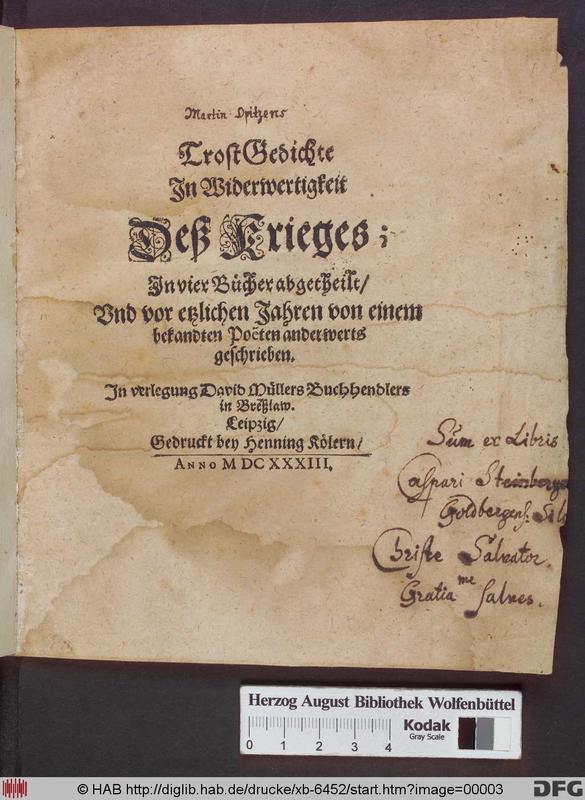 Martin Opitzens
TrostGedichte
In Widerwertigkeit
Deß Krieges;
In vier Bücher abgetheilt/
Vnd vor etzlichen Jahren von einem
bekandten Poëten anderwerts
geschrieben.
In verlegung David Müllers Buchhendlers
in Breßlaw.
Leipzig/
Gedruckt bey Henning Kölern/
ANNO M DC XXXIII.
Sum ex Libris
Caspari Steinberge
Goldbergens: Sil
Christe Salvator.
me
Gratia salves.
Herzog August Bibliothek Wolfenbüttel
0 1 2 3 4
Kodak
Gray Scale
© HAB http://diglib.hab.de/drucke/xb-6452/start.htm?image=00003
DFG